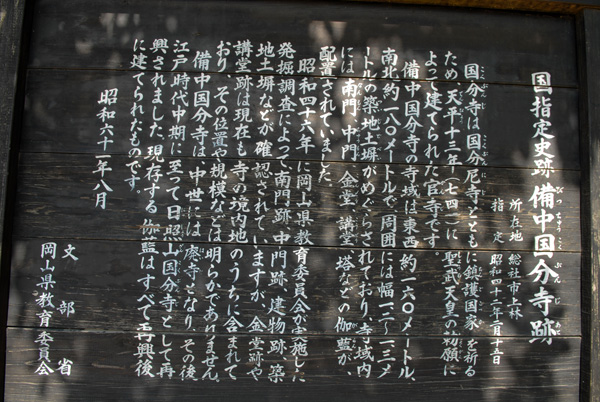 国指定史跡 備中国分寺跡
びっちゅうこくぶんじあと
所在地 総社市上林
指定 昭和四十三年二月十五日
国分寺は国分尼寺とともに鎮護国家を祈る
ため天平十三年(七四一)に聖武天皇の勅願に
よって建てられた官寺です。
備中国分寺の寺域は東西約一六〇メートル、
南北約一八〇メートルで、周囲には幅一二〜一三メ
ートルの築地土塀がめぐらされており、寺域内
には、南門、中門、金堂、講堂、塔などの伽藍が、
配置されていました。
昭和四十六年に岡山県教育委員会が実施した
発掘調査によって南門跡、中門跡、建物跡、築
地土塀などが確認されていますが、金堂跡や
講堂跡は現在も寺の境内地のうちに含まれて
おり、その位置や規模などは明らかでありません。
備中国分寺は中世には廃寺となり、その後
江戸時代中期に至って日照山国分寺として再
興されました。現存する伽藍はすべて再興後
に建てられたものです。
昭和六十一年八月
文部省
岡山県教育委員会